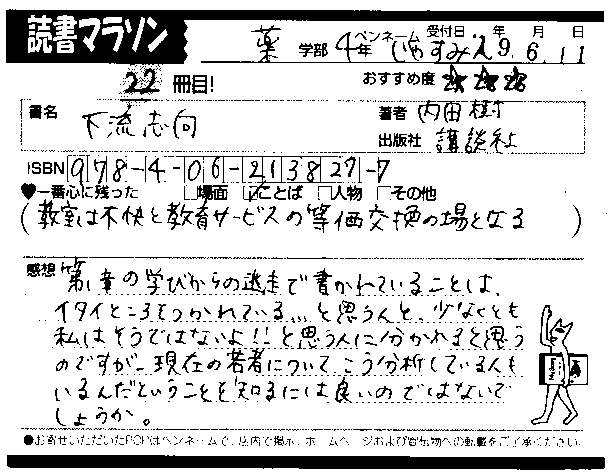 読書マラソン
薬 学部 4年 ペンネーム 受付日 年 月 日
すみん 9.6.11
22 冊目! おすすめ度 ☆☆☆
書名 下流志向
著者 内田樹
出版社 講談社
ISBN 978-4-06-213827-7
♥一番心に残った □場面 ☑ことば □人物 □その他
(教室は不快と教育サービスの等価交換の場となる)
感想 第1章の学びからの逃走で書かれていることは、
イタイところをつかれている…と思う人と、少なくとも
私はそうではないよ!!と思う人に分かれると思う
のですが、現在の若者についてこう分析している人も
いるんだということを知るには良いのではないで
しょうか。
●お寄せいただいたPOPはペンネームで、店内で掲示、ホームページおよび宣伝物への転載をご了承ください。